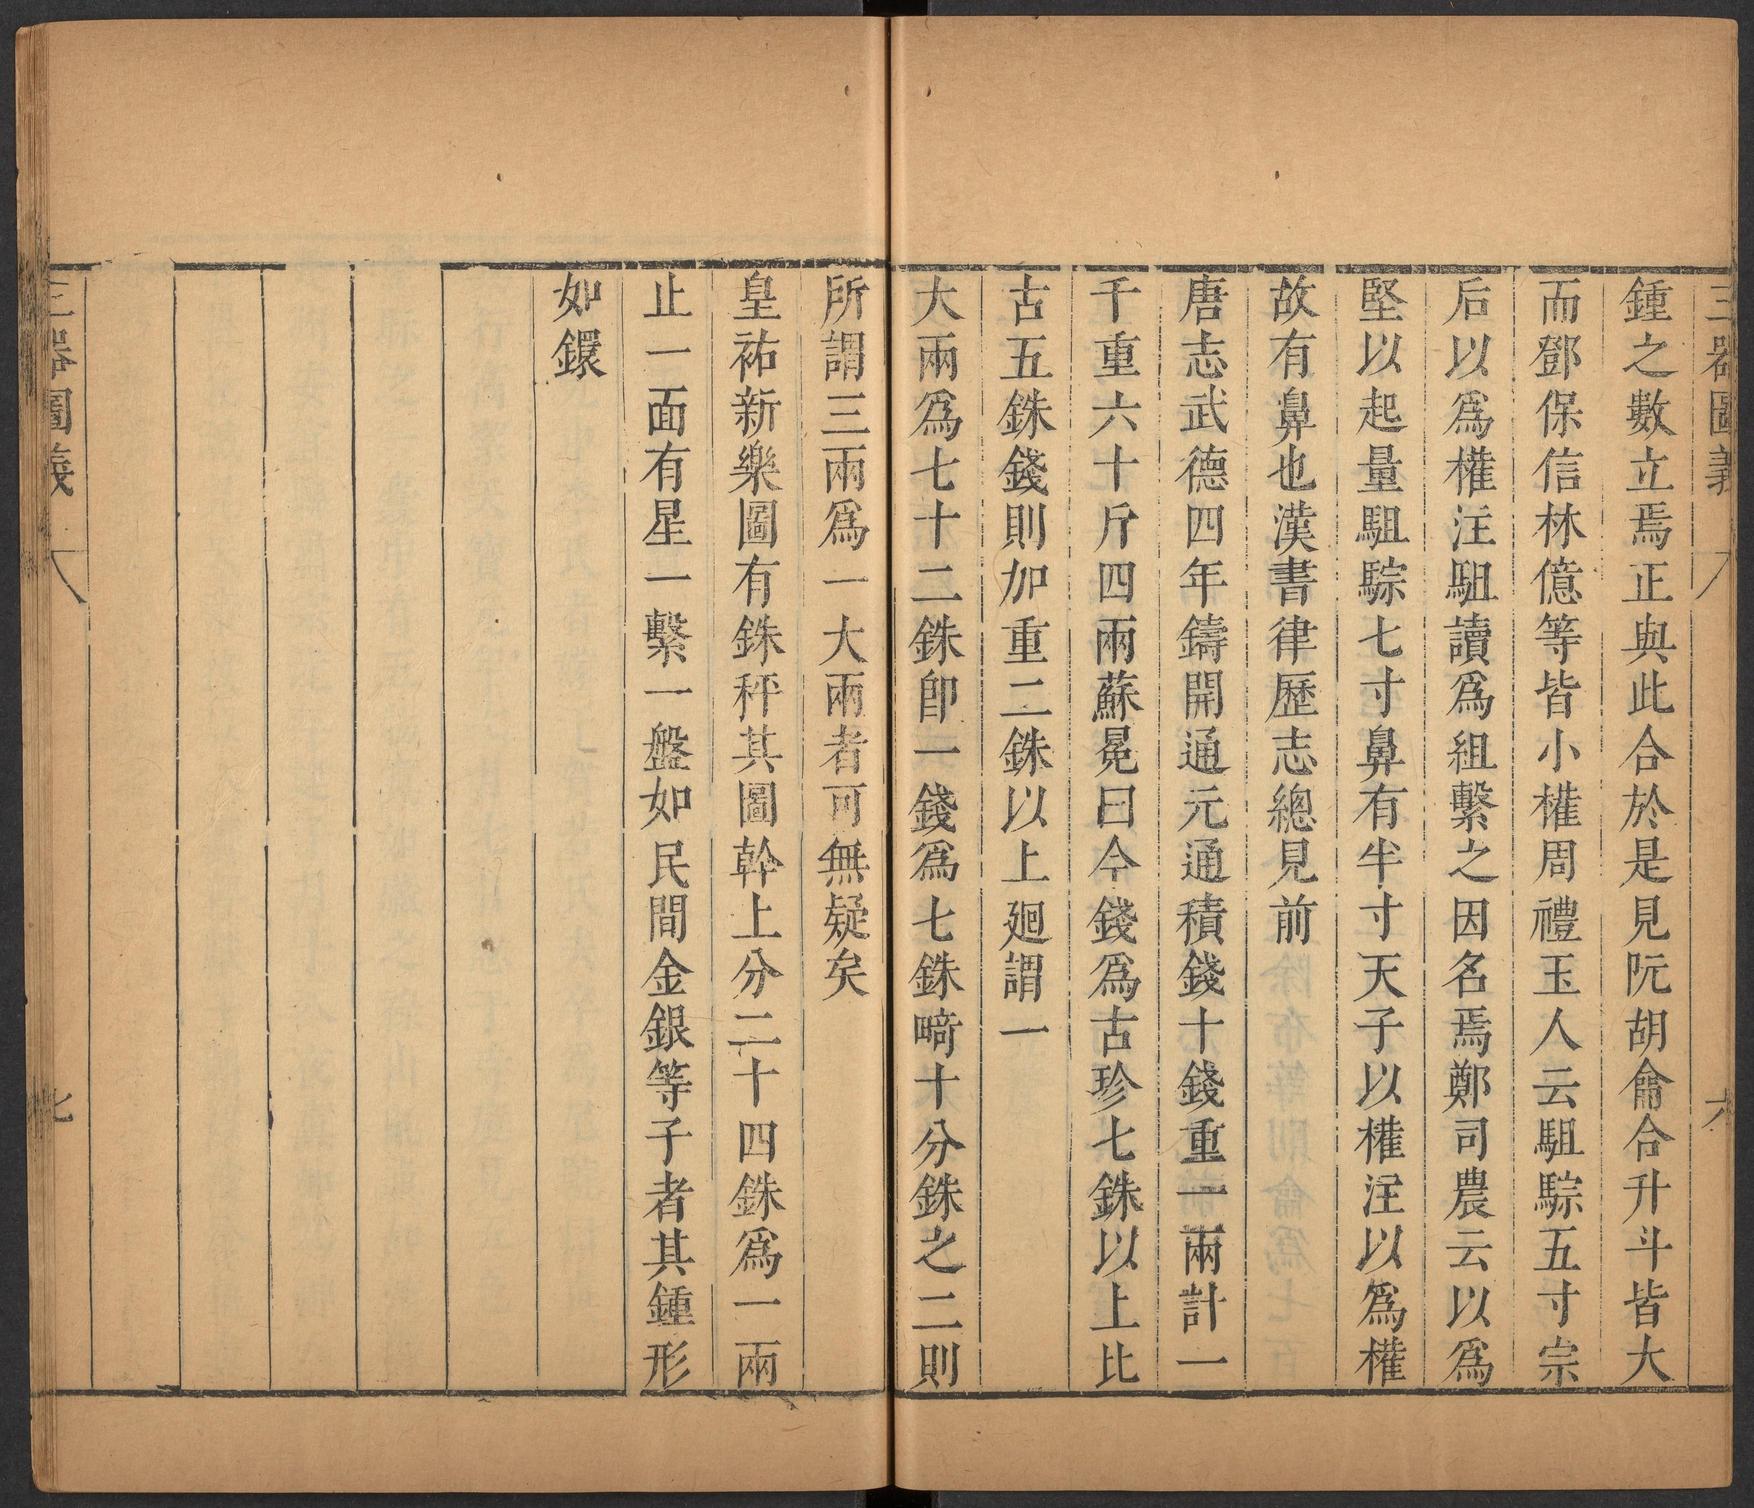 三器圖義
六
鍾之數立焉正與此合於是見阮胡龠合升斗皆大
而鄧保信林億等皆小權周禮玉人云駔騌五寸宗
后以爲權注駔讀爲組繫之因名焉鄭司農云以爲
堅以起量駔騌七寸鼻有半寸天子以權注以爲權
故有鼻也漢書律歷志總見前
唐志武德四年鑄開通元通積錢十錢重一兩計一
千重六十斤四兩蘇冕曰今錢爲古珍七銖以上比
古五銖錢則加重二銖以上廻謂一
大兩爲七十二銖卽一錢爲七銖畸十分銖之二則
所謂三兩爲一大兩者可無疑矣
皇祐新樂圖有銖秤其圖幹上分二十四銖爲一兩
止一面有星一繫一盤如民間金銀等子者其鍾形
如鐶
三器圖義
七